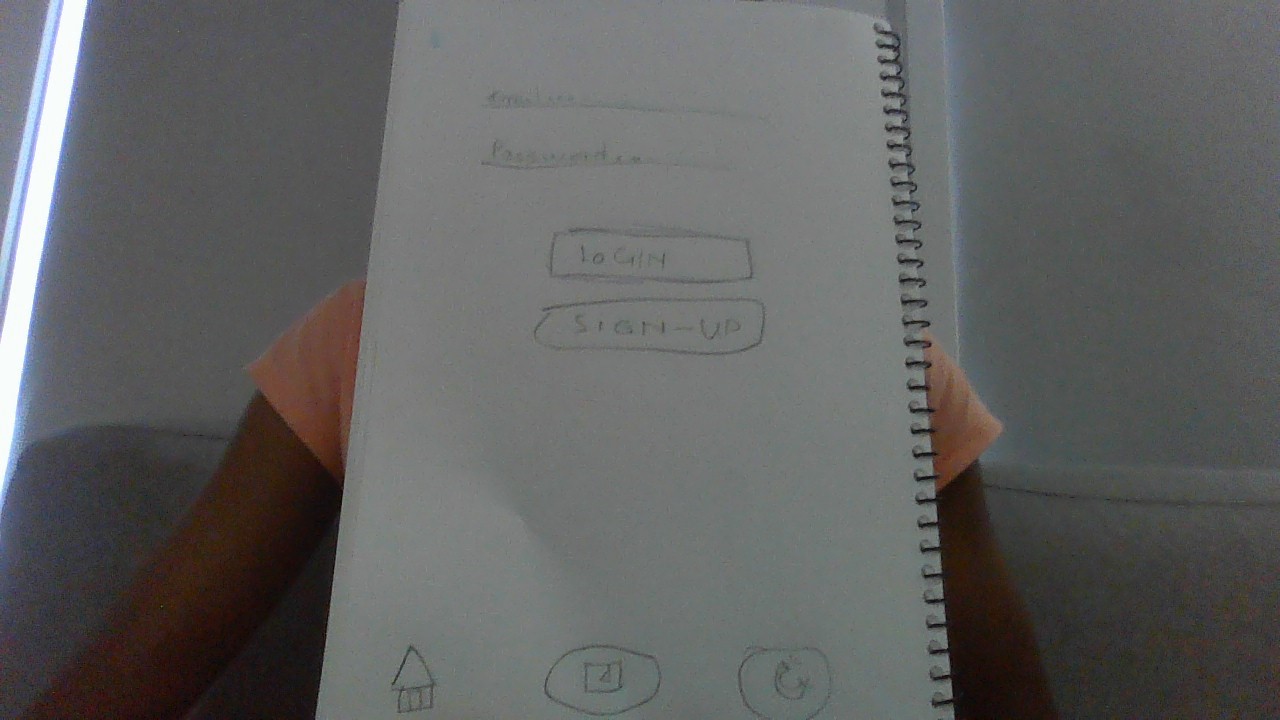 Email...
Password...
LOGIN
SIGN-UP